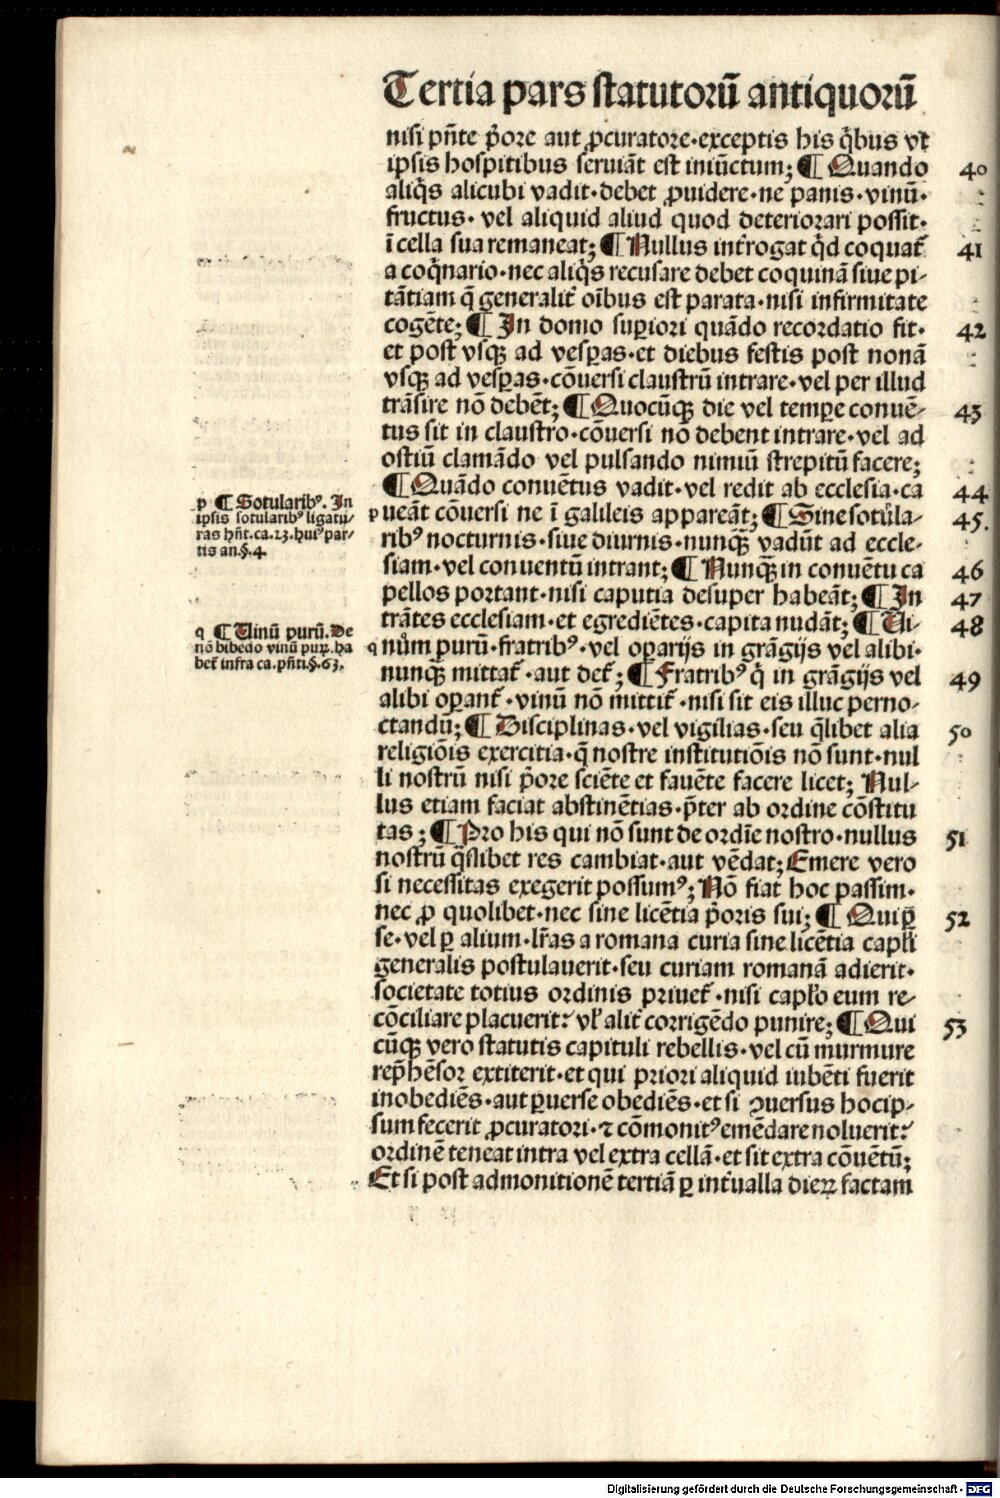 Tertia pars statutorū antiquorū
nisi pn̄te p̄ore aut ꝓcuratore·exceptis his q̄bus vt
ipsis hospitibus seruiāt est iniūctum; ¶ Quando 40
aliq̄s alicubi vadit·debet ꝓuidere·ne panis·vinū·
fructus·vel aliquid aliud quod deteriorari possit·
ī cella sua remaneat; ¶ Nullus int̄rogat q̄d coquat᷑ 41
a coq̄nario·nec aliq̄s recusare debet coquinā siue pi-
tātiam q̄ generalit᷑ oībus est parata·nisi infirmitate
cogēte; ¶ In domo suꝑiori quādo recordatio fit· 42
et post vsqꝫ ad vesꝑas·et diebus festis post nonā
vsqꝫ ad vesꝑas·cōuersi claustrū intrare·vel per illud
trāsire nō debēt; ¶ Quocūqꝫ die vel temꝑe conuē- 43
tus sit in claustro·cōuersi nō debent intrare·vel ad
ostiū clamādo vel pulsando nimiū strepitū facere;
¶ Quādo conuētus vadit·vel redit ab ecclesia·ca 44
p ueāt cōuersi ne ī galileis appareāt; ¶ Sine sotula- 45.
ribꝰ nocturnis·siue diurnis·nunqꝫ̄ vadūt ad eccle-
siam·vel conuentū intrant; ¶ Nunqꝫ̄ in conuētu ca 46
pellos portant·nisi caputia desuper habeāt; ¶ In 47
trātes ecclesiam·et egrediētes·capita nudāt; ¶ Ui- 48
q num purū·fratribꝰ·vel oꝑarijs in grāgijs vel alibi·
nunqꝫ̄ mittat᷑·aut det᷑; ¶ Fratribꝰ q̄ in grāgijs vel 49
alibi oꝑant᷑·vinū nō mittit᷑·nisi sit eis illuc perno-
ctandū; ¶ Disciplinas·vel vigilias·seu q̄libet alia 50
religiōis exercitia·q̄ nostre institutiōis nō sunt·nul
li nostrū nisi p̄ore sciēte et fauēte facere licet; Nul-
lus etiam faciat abstinētias·p̄ter ab ordine cōstitu
tas; ¶ Pro his qui nō sunt de ordīe nostro·nullus 51
nostrū q̄slibet res cambiat·aut vēdat; Emere vero
si necessitas exegerit possumꝰ; Nō fiat hoc passim·
nec ꝓ quolibet·nec sine licētia p̄oris sui; ¶ Qui ꝑ 52
se·vel ꝑ alium·lr̄as a romana curia sine licētia capłi
generalis postulauerit·seu curiam romanā adierit·
societate totius ordinis priuet᷑·nisi capło eum re-
cōciliare placuerit: vł alit᷑ corrigēdo punire; ¶ Qui 53
cūqꝫ vero statutis capituli rebellis·vel cū murmure
rep̄hēsor extiterit·et qui priori aliquid iubēti fuerit
inobediēs·aut ꝑuerse obediēs·et si ꝯuersus hoc ip-
sum fecerit ꝓcuratori·⁊ cōmonitꝰ emēdare noluerit:
ordinē teneat intra vel extra cellā·et sit extra cōuētū;
Et si post admonitionē tertiā ꝑ int̄ualla dieꝝ factam
p ¶ Sotularibꝰ. In
ipsis sotularibꝰ ligatu-
ras hn̄t. ca.23. huiꝰ par-
tis an.§.4.
q ¶ Uinū purū. De
nō bibēdo vinū puꝝ. ha
bet᷑ infra ca. pn̄ti.§.63.
Digitalisierung gefördert durch die Deutsche Forschungsgemeinschaft - DFG